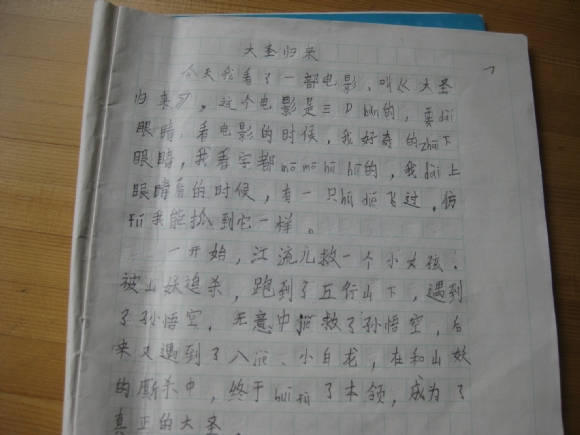 大圣归来
今天我看了一部电影，叫《大圣
归来》，这个电影是三D bǎn的，要dài
眼睛，看电影的时候，我好奇的zhāi下
眼睛，我看字都mō mō hū hū的，我dài上
眼睛看的时候，有一只hú dié飞过，仿
fú我能抓到它一样。
一开始，江流儿救一个小女孩，
被山妖追杀，跑到了五行山下，遇到
了孙悟空，无意中救了孙悟空，后
来又遇到了八jiè、小白龙，在和山妖
的厮杀中，终于huī fù了本领，成为了
真正的大圣。